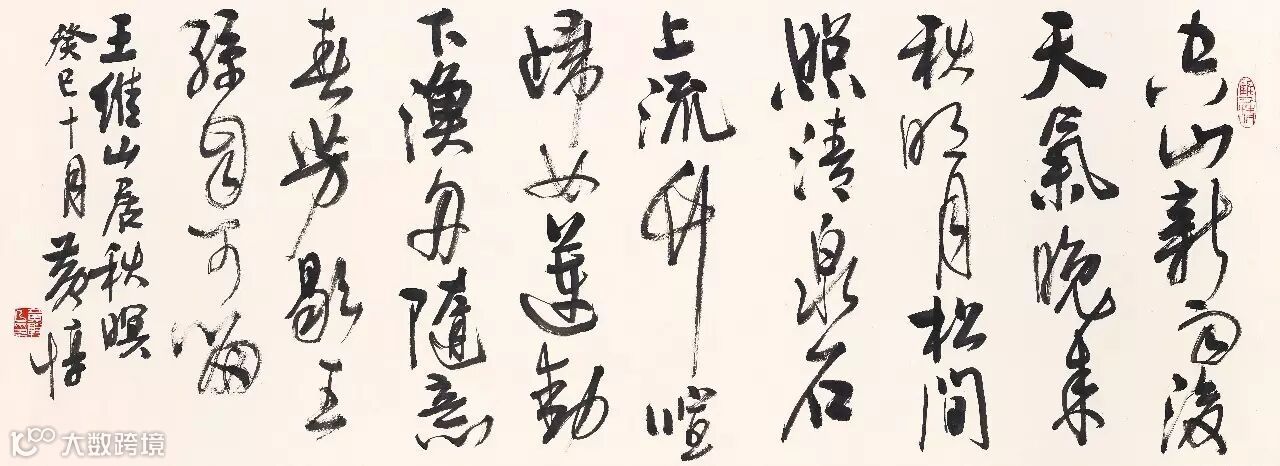 空山新雨後
天氣晚来
秋明月松間
照清泉石
上流竹喧
歸女蓮動
下漁舟隨意
春芳歇王
孫自可留
王維山居秋暝
癸巳十月黄惇
大数跨境